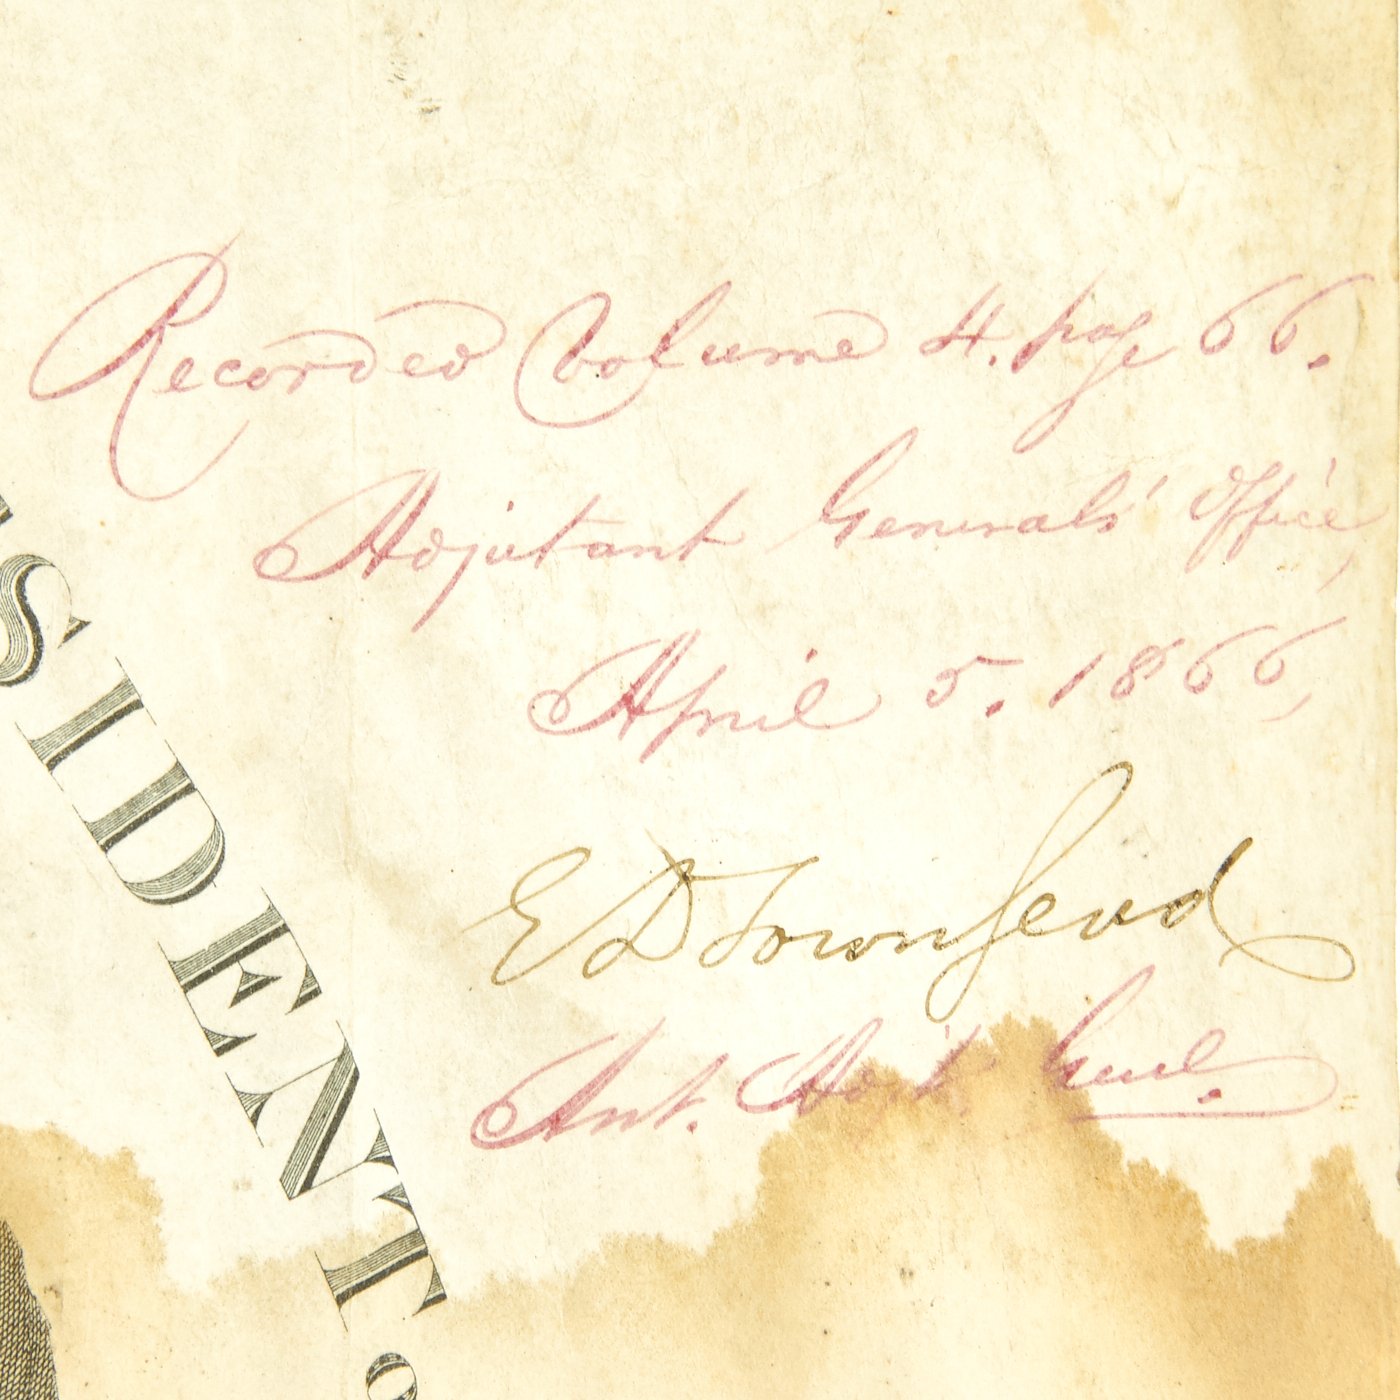 Recorded Volume 4. page 66.
Adjutant Generals' Office,
April 5. 1866,
E D Townsend
Asst. Adj't. Genl.
SIDENT O